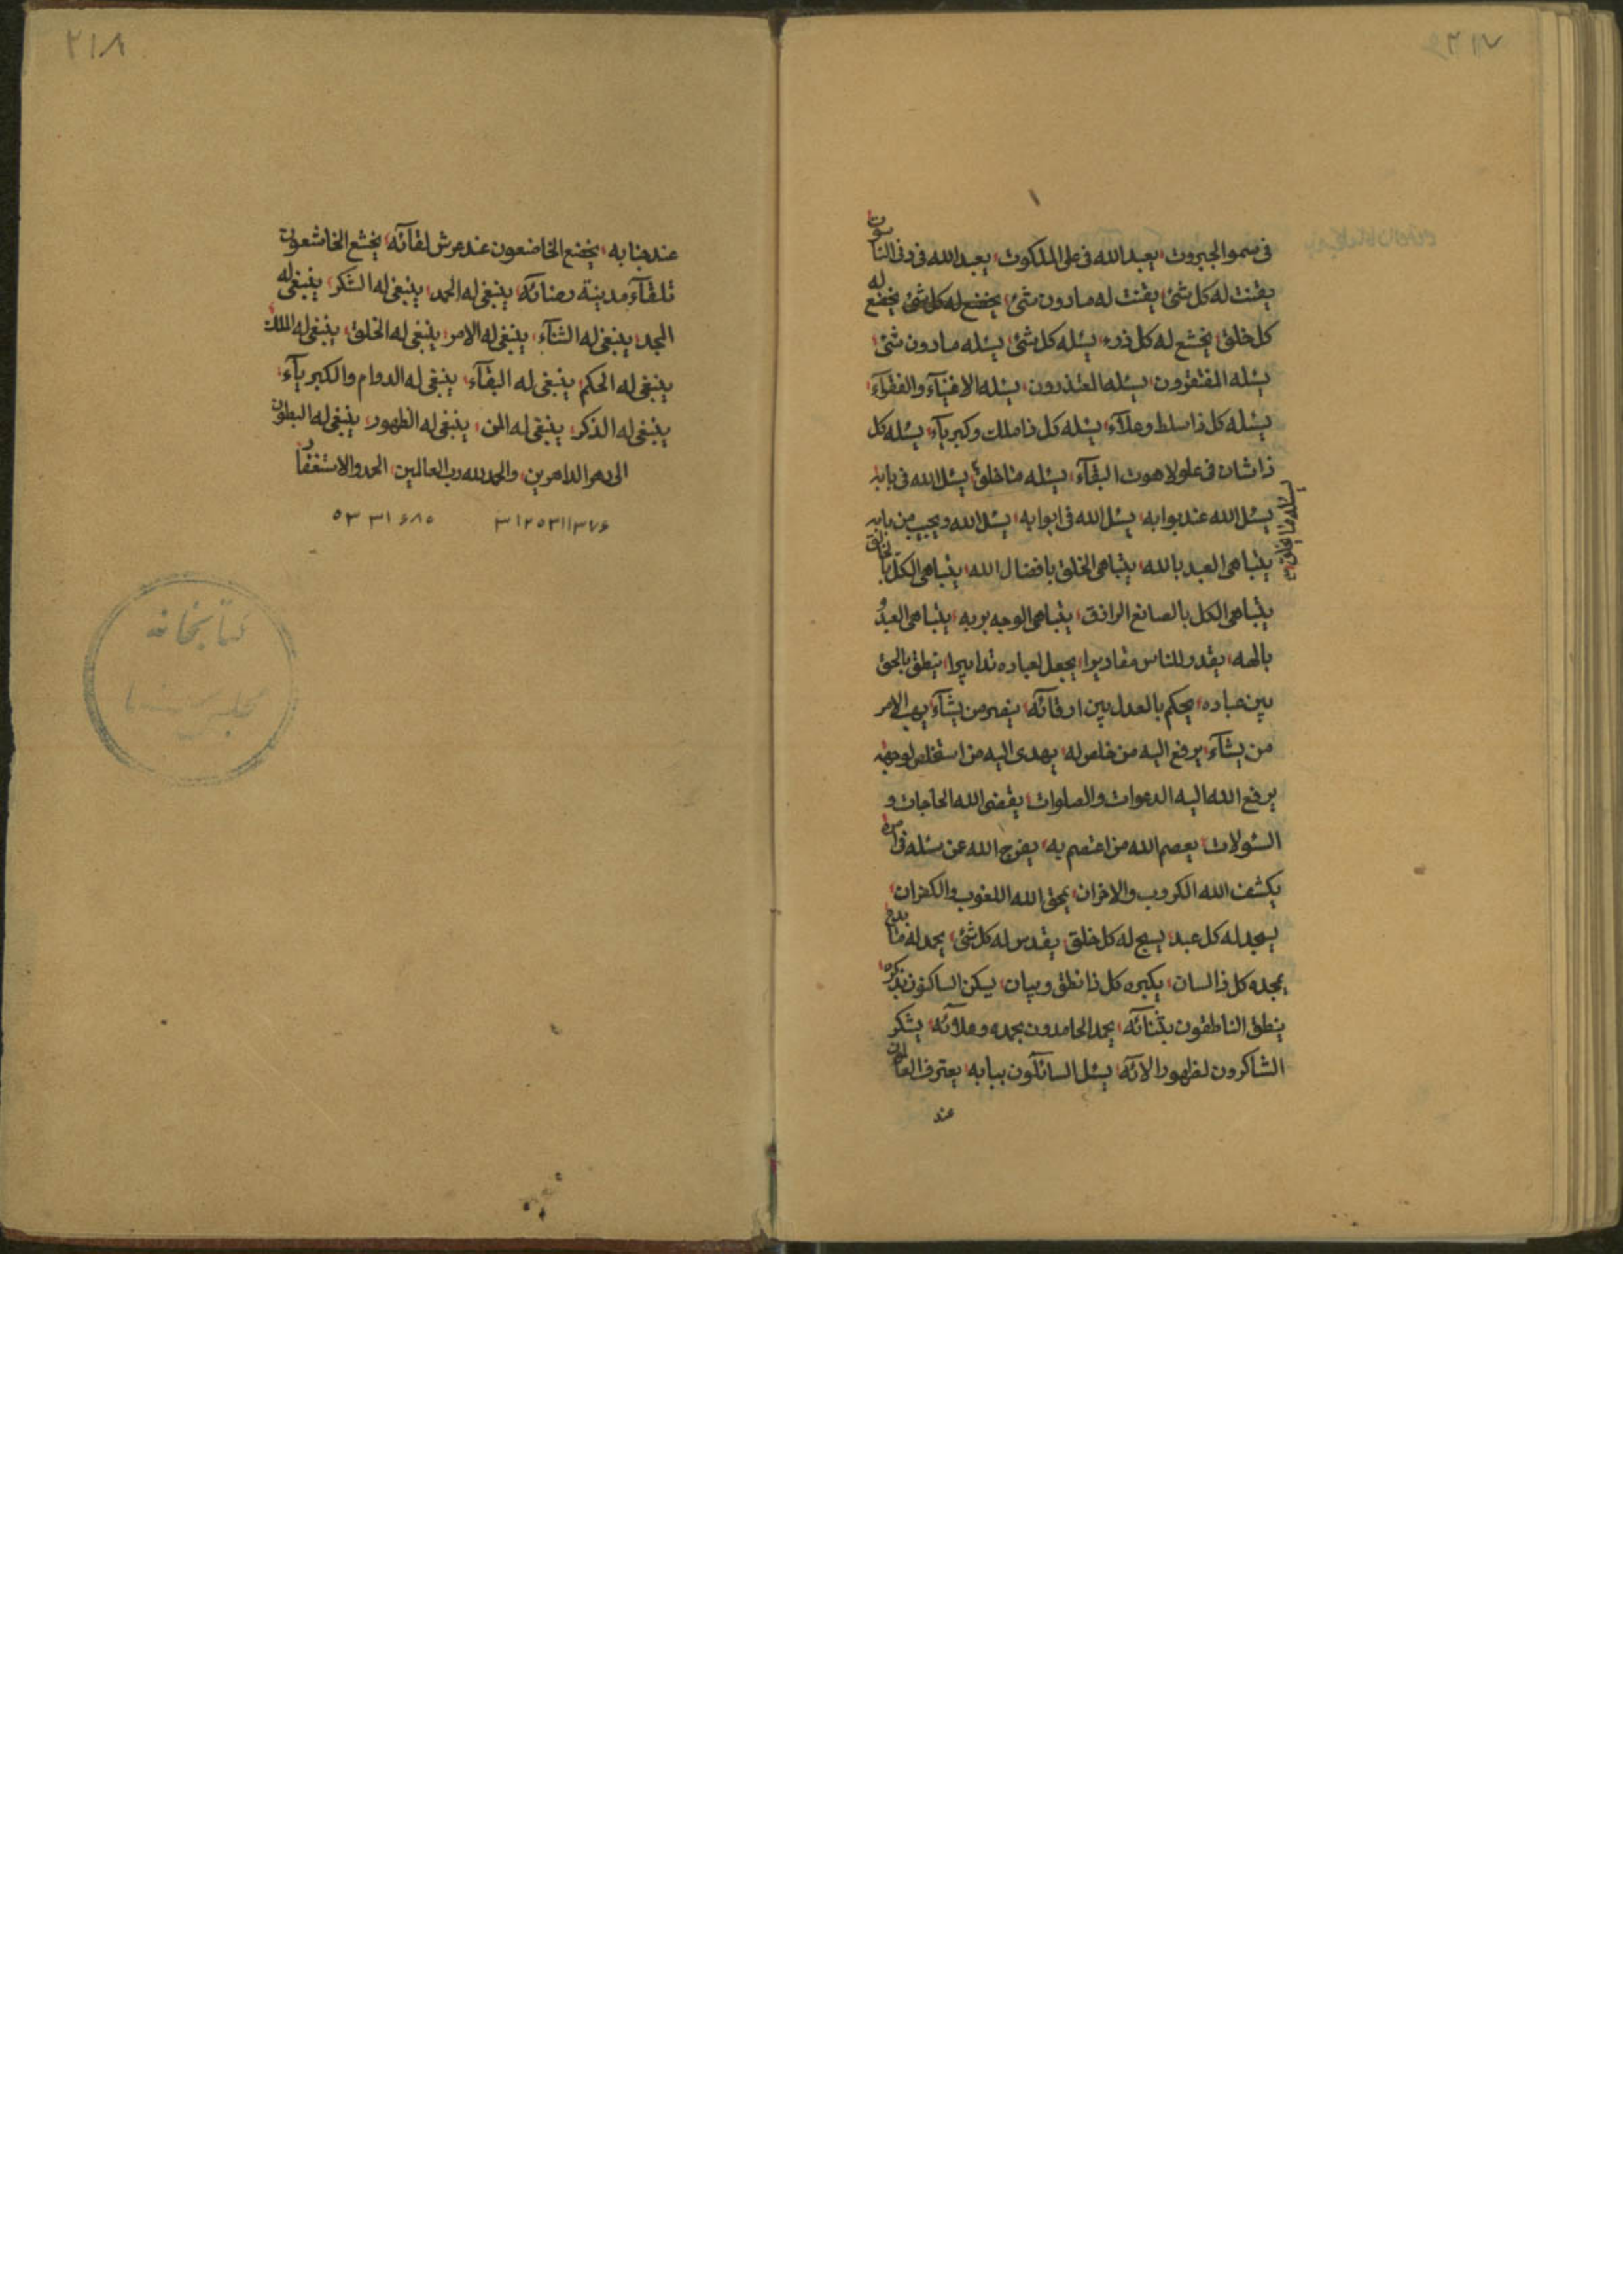 ٢١٧
في سمو الجبروت يعبد الله في على الملكوت يعبد الله في دنى الناسوت
يقنت له كل شئ يقنت له مادون شئ يخضع له كل شئ يخضع له
كل خلق يخشع له كل ذرء يسئله كل شئ يسئله مادون شئ
يسئله المفتقرون يسئله المعتذرون يسئله الاغنيآء والفقرآء
يسئله كل ذا سلط وعلآء يسئله كل ذا ملك وكبريآء يسئله كل
ذا شان في علو لاهوت البقآء يسئله ما خلق يسئل الله في بابه
يسئله ما يخلق
يسئل الله عند بوابه يسئل الله في ابوابه يسئل الله ويجيب من بابه
يتباهى العبد بالله يتباهى الخلق بافضال الله يتباهى الكل بالخالق
يتباهى الكل بالصانع الرازق يتباهى الوجه بربه يتباهى العبد و
بالهه يقدر للناس مقاديرا يجعل لعباده تدابيرا ينطق بالحق
بين عباده يحكم بالعدل بين ارقآئه ينصر من يشآء يهب الامر
من يشآء يرفع اليه من خلص له يهدى اليه من استخلص لوجهه
يرفع الله اليه الدعوات والصلوات يقضى الله الحاجات و
السئولات يعصم الله من اعتصم به يفرج الله عن سئله في امره
يكشف الله الكروب والاحزان يمحق الله اللغوب والكفران
يسجد له كل عبد يسبح له كل خلق يقدس له كل شئ يحمد له ما
يمجده كل ذا لسان يكبره كل ذا نطق وبيان يسكن الساكنون بذكره
ينطق الناطقون بثنآئه يحمد الحامدون بحمده وعلآئه يشكر
الشاكرون لظهور الآئه يسئل السآئلون ببابه يعترف
عند
٢١٨
عند جنابه يخضع الخاضعون عند عرش لقآئه يخشع الخاشعون
تلقآء مدينة رضائه ينبغى له الحمد ينبغى له الشكر ينبغى له
المجد ينبغى له الثنآء ينبغى له الامر ينبغى له الخلق ينبغى له الملك
ينبغى له الحكم ينبغى له البقآء ينبغى له الدوام والكبريآء
ينبغى له الذكر ينبغى له المن ينبغى له الظهور ينبغى له البطون
الى دهر الداهرين والحمد لله رب العالمين الحمد والاستغفار
٣١٢٥٣١١٣٧۶ ٥٣٣١۶٨٥
كتابخانه
مجلس